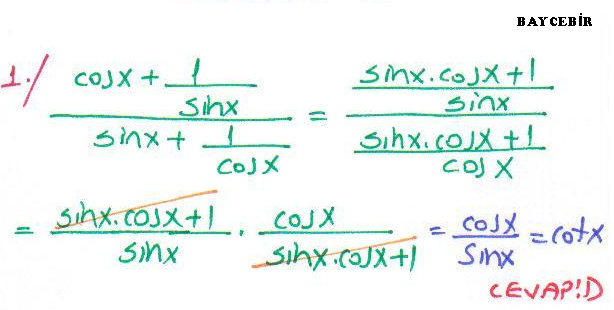 BAY CEBİR
1./ (cosx + 1/sinx) / (sinx + 1/cosx) = ((sinx.cosx+1)/sinx) / ((sinx.cosx+1)/cosx)
= (sinx.cosx+1)/sinx . cosx/(sinx.cosx+1) = cosx/sinx = cotx
CEVAP:D